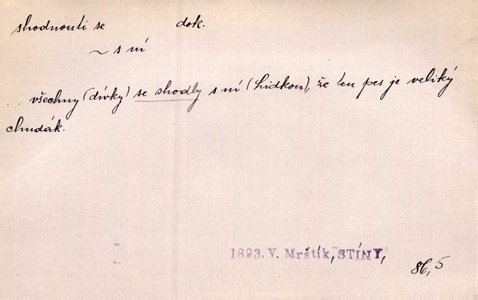 shodnouti se dok.
~ s ní
.. všechny (dívky) se shodly s ní (Lidkou), že ten pes je veliký
chudák.
1893. V. Mrštík, STÍNY,
86,5